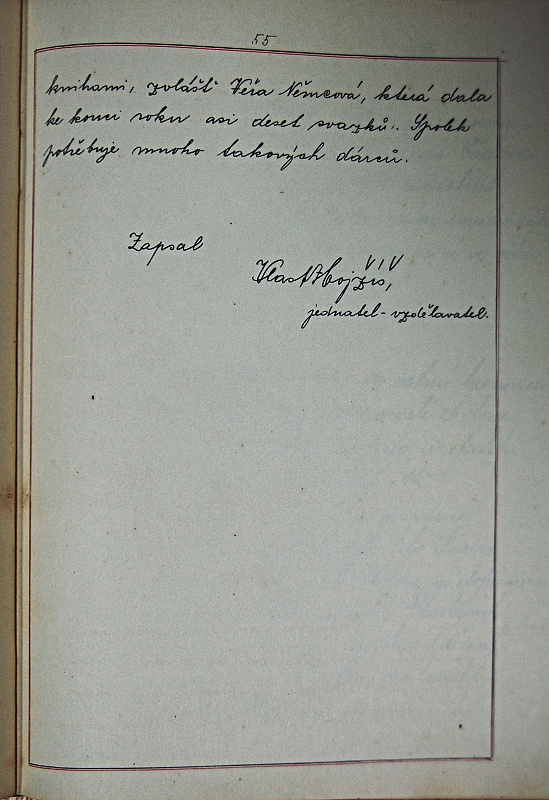 55
knihami, zvláště Věra Němcová, která dala
ke konci roku asi deset svazků. Spolek
potřebuje mnoho takových dárců.
Zapsal
jednatel - vzdělavatel.